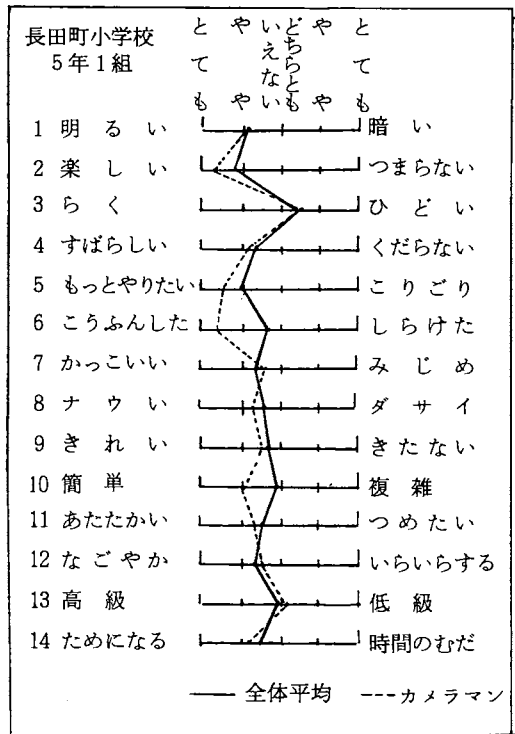 長田町小学校
5年1組
とても
やや
どちらとも
いえない
やや
とても
1 明るい 暗い
2 楽しい つまらない
3 らく ひどい
4 すばらしい くだらない
5 もっとやりたい こりごり
6 こうふんした しらけた
7 かっこいい みじめ
8 ナウい ダサイ
9 きれい きたない
10 簡単 複雑
11 あたたかい つめたい
12 なごやか いらいらする
13 高級 低級
14 ためになる 時間のむだ
全体平均 カメラマン